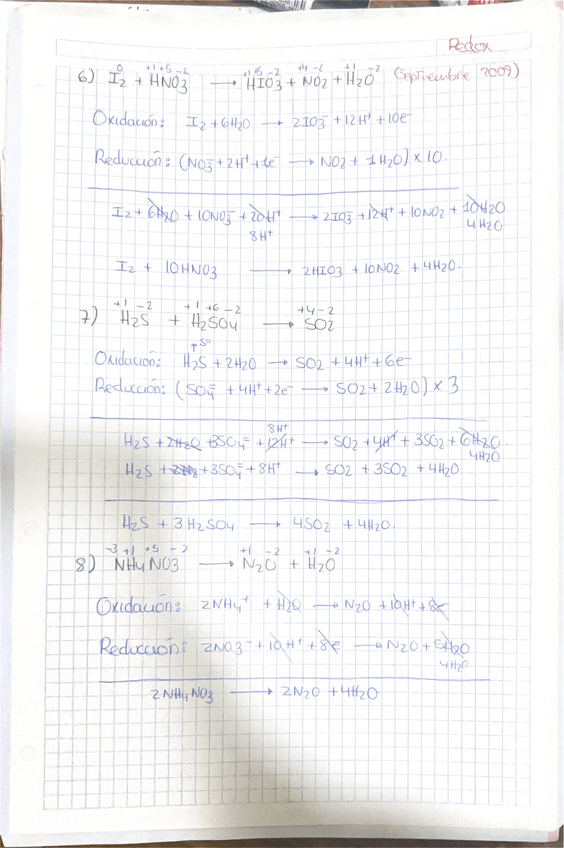 Redox
0 +1+5-2 +1+5-2 +4-2 +1 -2
6) I2 + HNO3 → HIO3 + NO2 + H2O (Septiembre 2009)
Oxidación: I2 + 6H2O → 2IO3⁻ + 12H⁺ + 10e⁻
Reducción: (NO3⁻ + 2H⁺ + 1e⁻ → NO2 + 1H2O) × 10.
I2 + 6H2O + 10NO3⁻ + 20H⁺ → 2IO3⁻ + 12H⁺ + 10NO2 + 10H2O
8H⁺ 4H2O
I2 + 10HNO3 → 2HIO3 + 10NO2 + 4H2O.
+1 -2 +1 +6 -2 +4 -2
7) H2S + H2SO4 → SO2
Oxidación: H2S + 2H2O → SO2 + 4H⁺ + 6e⁻
Reducción: (SO4⁼ + 4H⁺ + 2e⁻ → SO2 + 2H2O) × 3
8H⁺
H2S + 2H2O + 3SO4⁼ + 12H⁺ → SO2 + 4H⁺ + 3SO2 + 6H2O.
4H2O
H2S + 3SO4⁼ + 8H⁺ → SO2 + 3SO2 + 4H2O
H2S + 3H2SO4 → 4SO2 + 4H2O.
-3 +1 +5 -2 +1 -2 +1 -2
8) NH4NO3 → N2O + H2O
Oxidación: 2NH4⁺ + H2O → N2O + 10H⁺ + 8e⁻
Reducción: 2NO3⁻ + 10H⁺ + 8e⁻ → N2O + 5H2O
4H2O
2NH4NO3 → 2N2O + 4H2O